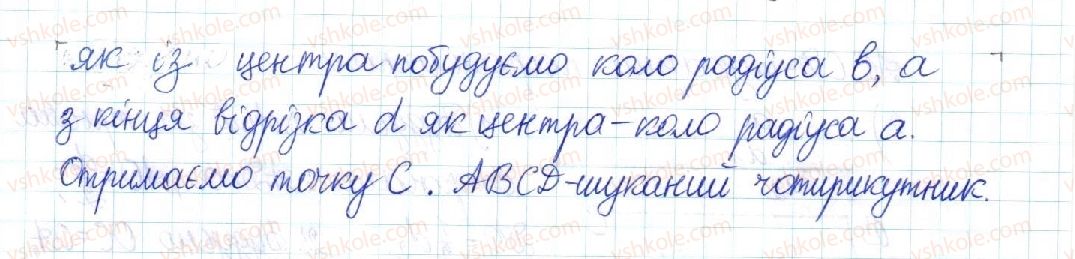 як із центра побудуємо коло радіуса b, а
з кінця відрізка d як центра – коло радіуса a.
Отримаємо точку C. ABCD – шуканий чотирикутник.